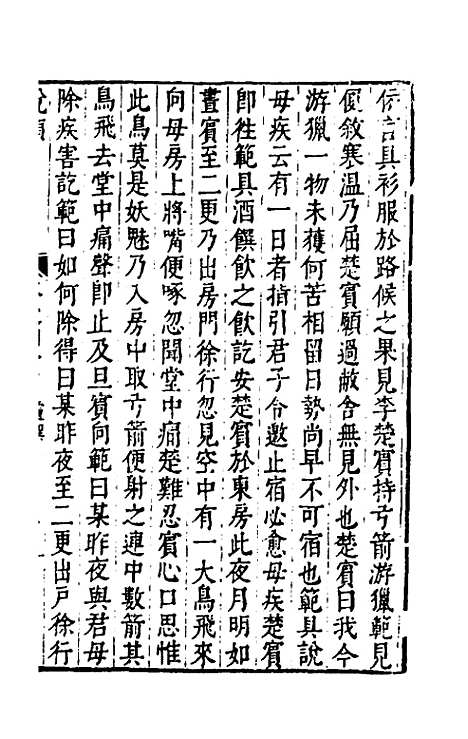 依言具衫服於路候之果見李楚賓持弓箭游獵範見
便敘寒溫乃屈楚賓願過敝舍無見外也楚賓曰我今
游獵一物未獲何苦相留日勢尚早不可宿也範具說
母疾云有一日者指引君子令邀止宿必愈母疾楚賓
即徃範具酒饌飲之飲訖安楚賓於東房此夜月明如
晝賓至二更乃出房門徐行忽見空中有一大鳥飛來
向母房上將嘴便啄忽聞堂中痛楚難忍賓心口思惟
此鳥莫是妖魅乃入房中取弓箭便射之連中數箭其
鳥飛去堂中痛聲即止及旦賓向範曰某昨夜與君母
除疾害訖範曰如何除得曰某昨夜至二更出戶徐行